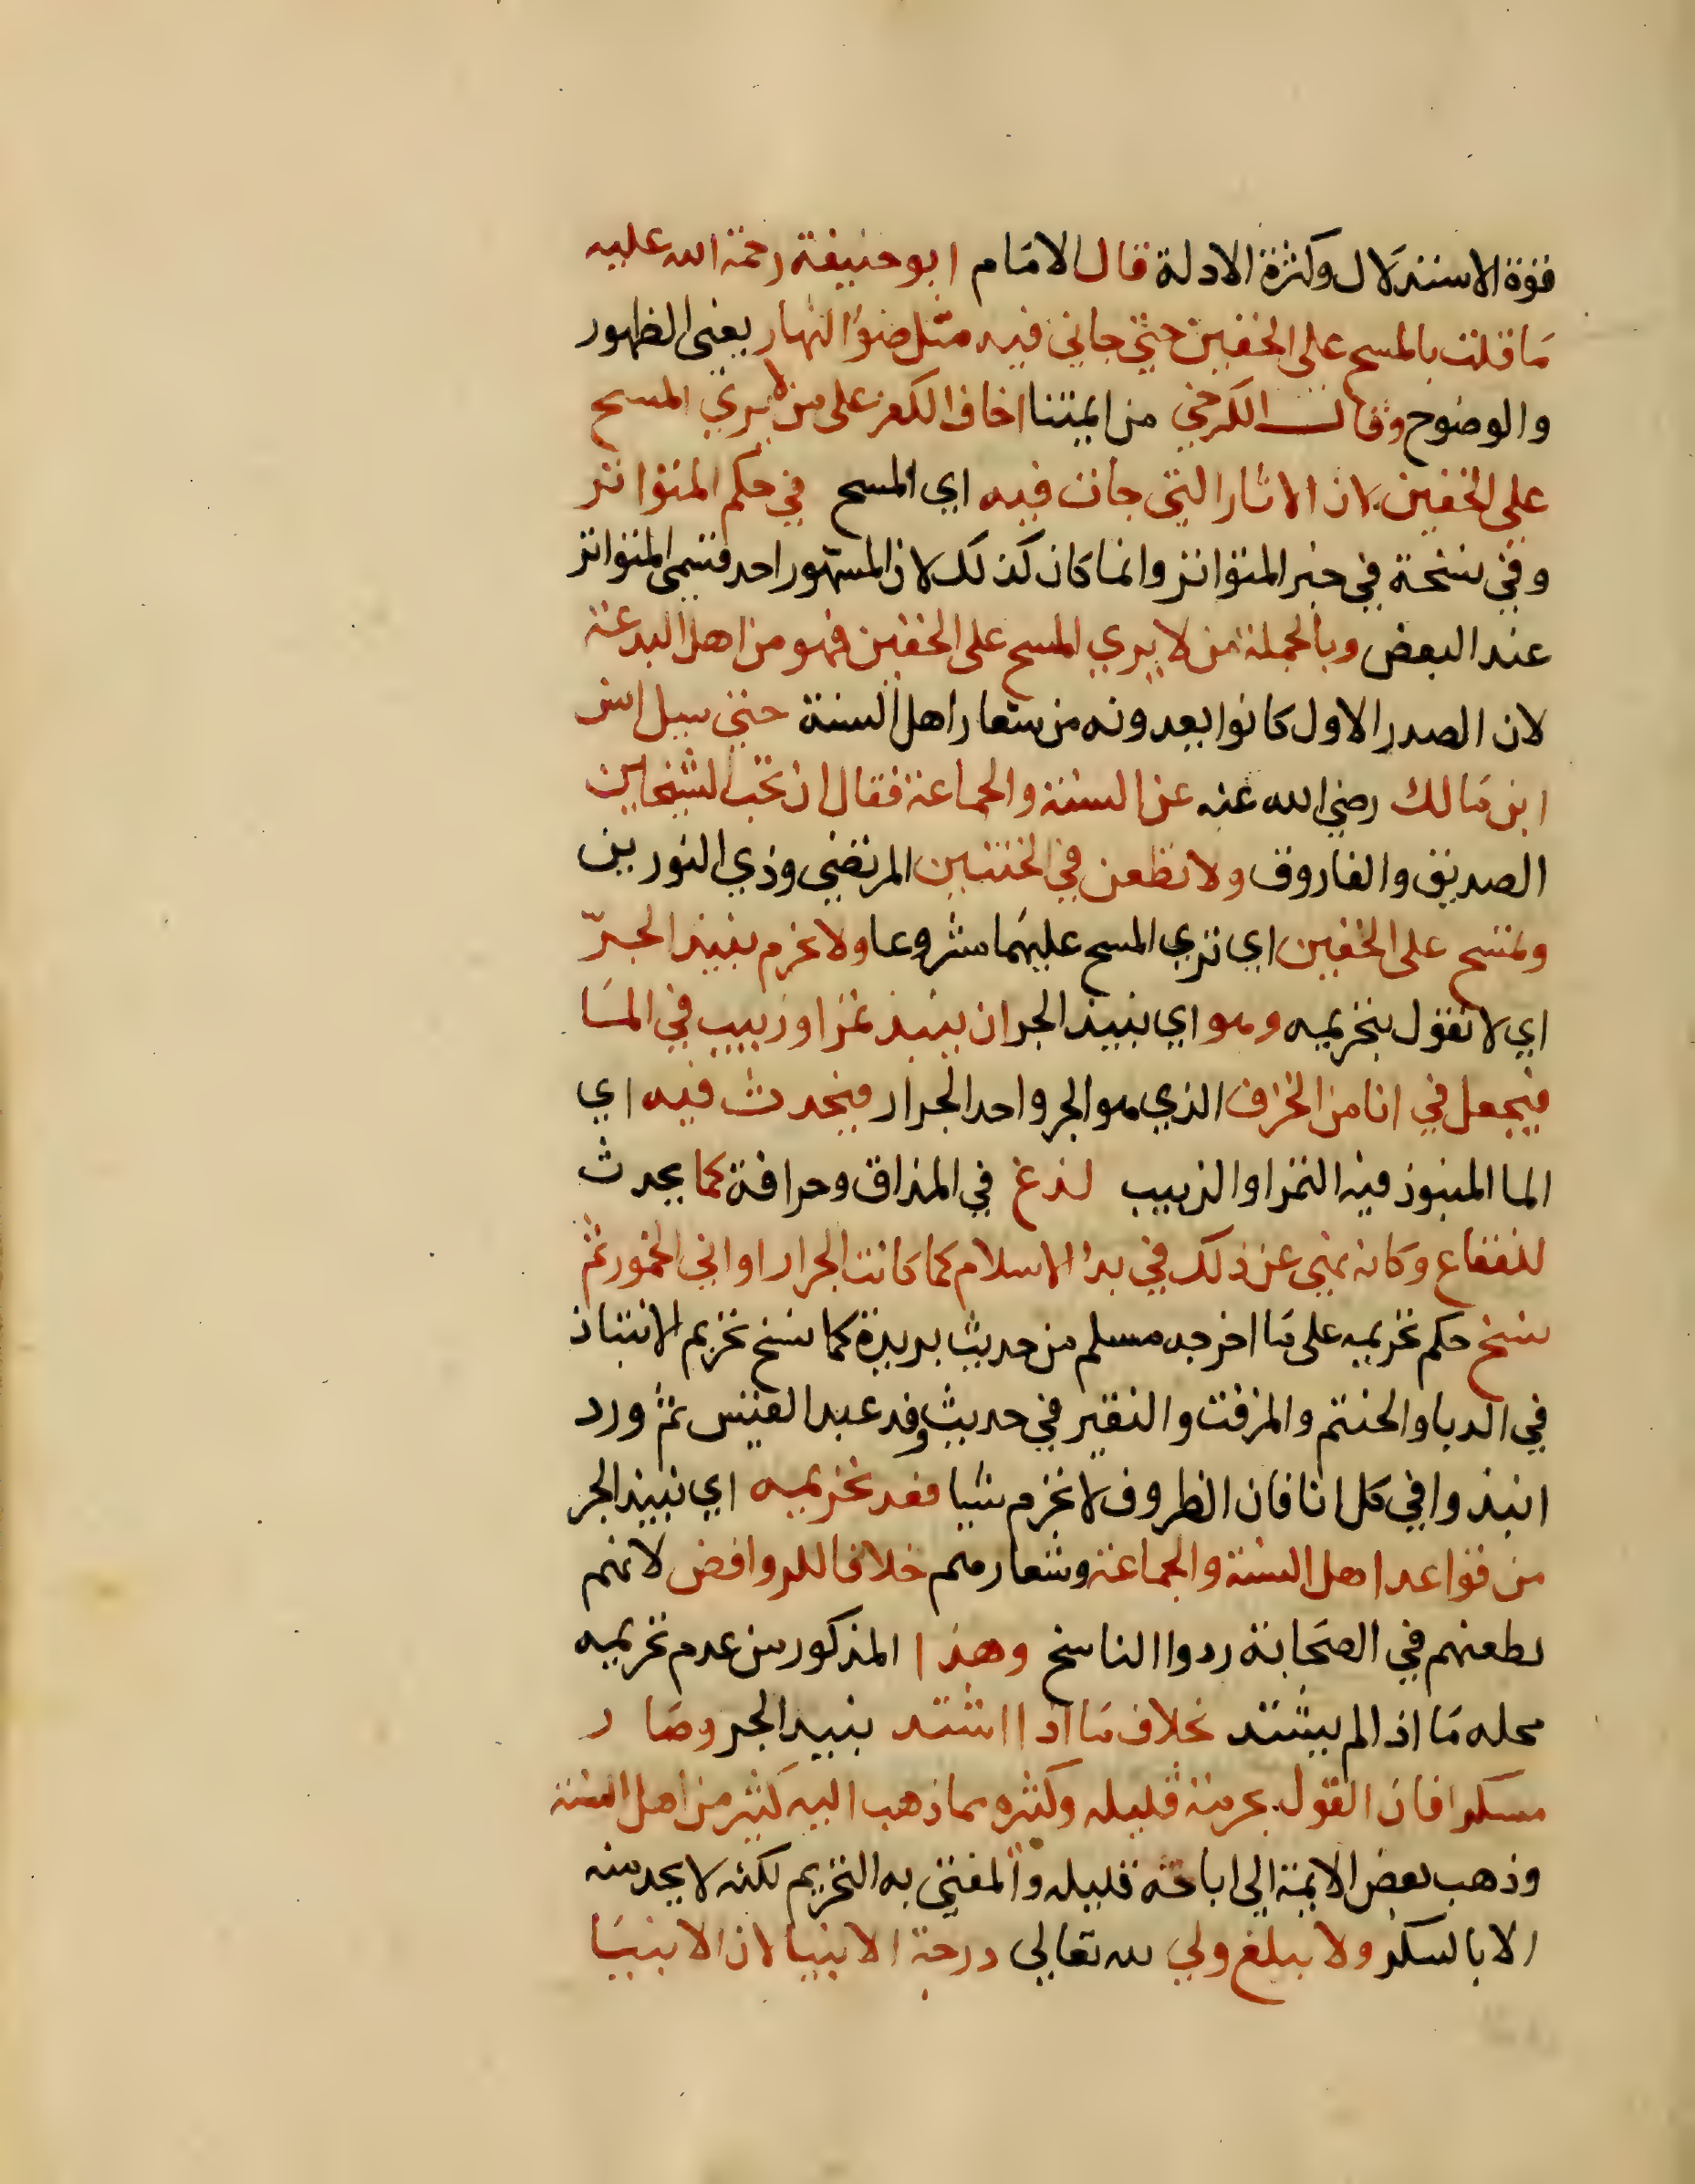 قوة الاستدلال وكثرة الادلة قال الامام ابو حنيفة رحمة الله عليه
ما قلت بالمسح على الخفين حتى جاني فيه مثل ضوٴ النهار يعنى الظهور
والوضوح وقال الكرخي من ايمتنا اخاف الكفر على من لا يري المسح
على الخفين لان الاثار التي جات فيه اي المسح في حكم المتواتر
وفي نسخة في حيز المتواتر وانما كان كذلك لان المشهور احد قسمى المتواتر
عند البعض وبالجملة من لا يري المسح على الخفين فهو من اهل البدعة
لان الصدر الاول كانوا يعدونه من شعار اهل السنة حتى سيل انس
ابن مالك رضي الله عنه عن السنة والجماعة فقال ان تحب الشيخين
الصديق والفاروق ولا تطعن في الختنين المرتضي وذي النورين
وتمسح على الخفين اي تري المسح عليهما مشروعا ولا نحرم نبيذ الجرّ
اي لا نقول بتحريمه وهو اي نبيذ الجر ان ينبذ تمر او زبيب في الما
فيجعل في انا من الخزف الذي هو الجر واحد الجرار فيحدث فيه اي
الما المنبوذ فيه التمر او الزبيب لذع في المذاق وحرافة كما يحدث
للفقاع وكانه نهى عن ذلك في بدٴ الاسلام كما كانت الجرار اواني الخمور ثم
نسخ حكم تحريمه على ما اخرجه مسلم من حديث بريدة كما نسخ تحريم الانتباذ
في الدبا والحنتم والمزفت والنقير في حديث وفد عبد القيس ثم ورد
انبذوا في كل انا فان الظروف لا تحرم شيا فعد تحريمه اي نبيذ الجر
من قواعد اهل السنة والجماعة وشعارهم خلافا للروافض لانهم
لطعنهم في الصحابة ردوا الناسخ وهذا المذكور من عدم تحريمه
محله ما اذا لم يشتد بخلاف ما اذا اشتد نبيذ الجر وصار
مسكرا فان القول بحرمة قليله وكثيره مما ذهب اليه كثير من اهل السنة
وذهب بعض الايمة الي اباحة قليله والمفتى به التحريم لكنه لا يحد منه
الا بالسكر ولا يبلغ ولي لله تعالي درجة الانبيا لان الانبيا